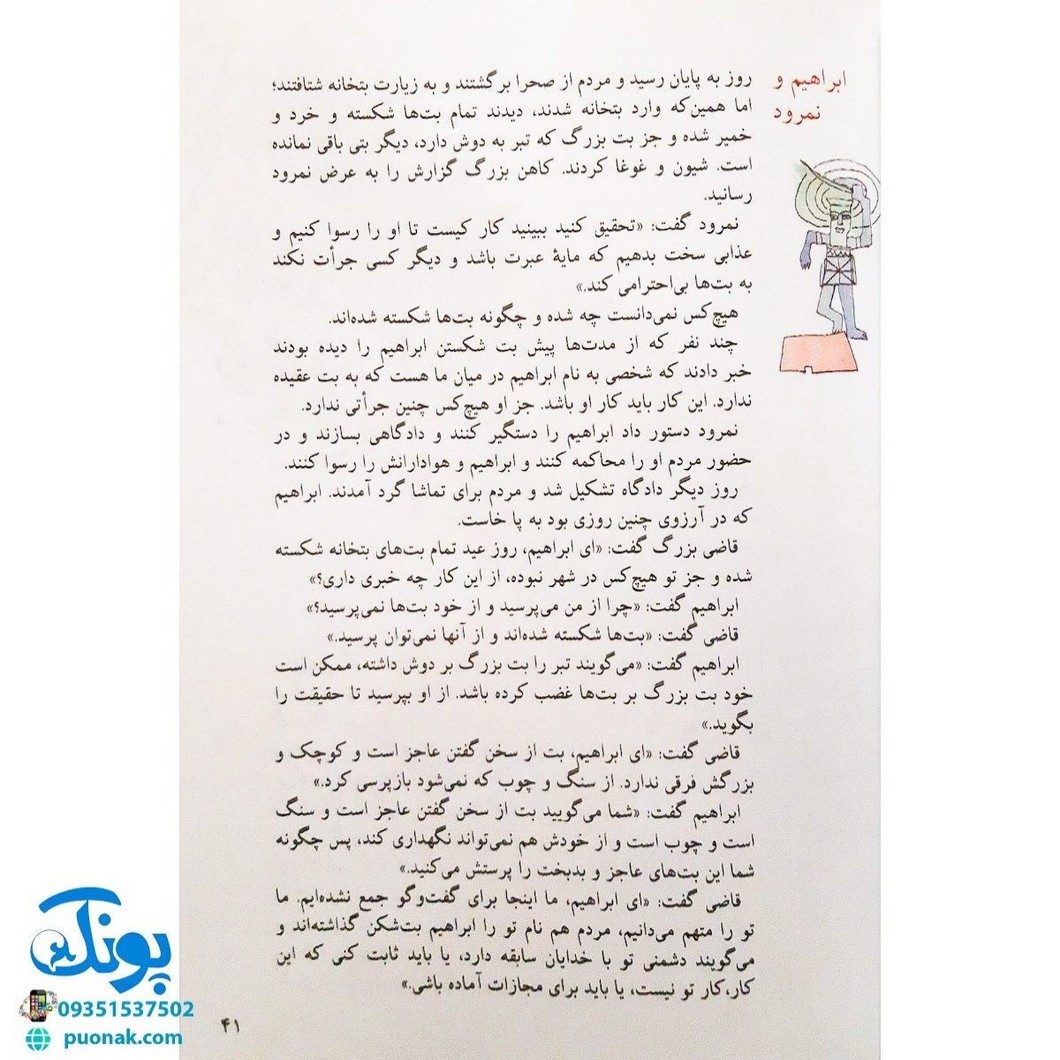 ابراهیم و
نمرود
روز به پایان رسید و مردم از صحرا برگشتند و به زیارت بتخانه شتافتند؛
اما همین‌که وارد بتخانه شدند، دیدند تمام بت‌ها شکسته و خرد و
خمیر شده و جز بت بزرگ که تبر به دوش دارد، دیگر بتی باقی نمانده
است. شیون و غوغا کردند. کاهن بزرگ گزارش را به عرض نمرود
رسانید.
نمرود گفت: «تحقیق کنید ببینید کار کیست تا او را رسوا کنیم و
عذابی سخت بدهیم که مایهٔ عبرت باشد و دیگر کسی جرأت نکند
به بت‌ها بی‌احترامی کند.»
هیچ‌کس نمی‌دانست چه شده و چگونه بت‌ها شکسته شده‌اند.
چند نفر که از مدت‌ها پیش بت شکستن ابراهیم را دیده بودند
خبر دادند که شخصی به نام ابراهیم در میان ما هست که به بت عقیده
ندارد. این کار باید کار او باشد. جز او هیچ‌کس چنین جرأتی ندارد.
نمرود دستور داد ابراهیم را دستگیر کنند و دادگاهی بسازند و در
حضور مردم او را محاکمه کنند و ابراهیم و هوادارانش را رسوا کنند.
روز دیگر دادگاه تشکیل شد و مردم برای تماشا گرد آمدند. ابراهیم
که در آرزوی چنین روزی بود به پا خاست.
قاضی بزرگ گفت: «ای ابراهیم، روز عید تمام بت‌های بتخانه شکسته
شده و جز تو هیچ‌کس در شهر نبوده، از این کار چه خبری داری؟»
ابراهیم گفت: «چرا از من می‌پرسید و از خود بت‌ها نمی‌پرسید؟»
قاضی گفت: «بت‌ها شکسته شده‌اند و از آنها نمی‌توان پرسید.»
ابراهیم گفت: «می‌گویند تبر را بت بزرگ بر دوش داشته، ممکن است
خود بت بزرگ بر بت‌ها غضب کرده باشد. از او بپرسید تا حقیقت را
بگوید.»
قاضی گفت: «ای ابراهیم، بت از سخن گفتن عاجز است و کوچک و
بزرگش فرقی ندارد. از سنگ و چوب که نمی‌شود بازپرسی کرد.»
ابراهیم گفت: «شما می‌گویید بت از سخن گفتن عاجز است و سنگ
است و چوب است و از خودش هم نمی‌تواند نگهداری کند، پس چگونه
شما این بت‌های عاجز و بدبخت را پرستش می‌کنید.»
قاضی گفت: «ای ابراهیم، ما اینجا برای گفت‌وگو جمع نشده‌ایم. ما
تو را متهم می‌دانیم، مردم هم نام تو را ابراهیم بت‌شکن گذاشته‌اند و
می‌گویند دشمنی تو با خدایان سابقه دارد، یا باید ثابت کنی که این
کار،کار تو نیست، یا باید برای مجازات آماده باشی.»
۴۱
پونک
09351537502
puonak.com